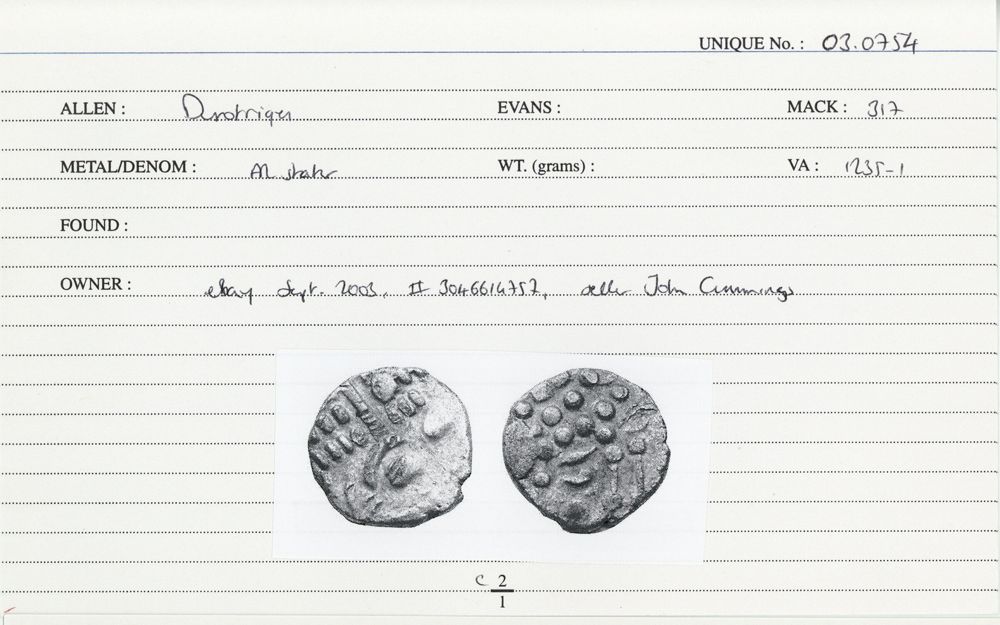 UNIQUE No. : 03.0754
ALLEN : Durotriges EVANS : MACK : 317
METAL/DENOM : AR stater WT. (grams) : VA : 1235-1
FOUND :
OWNER : ebay Sept. 2003, # 3046614757, seller John Cummings
C 2
1